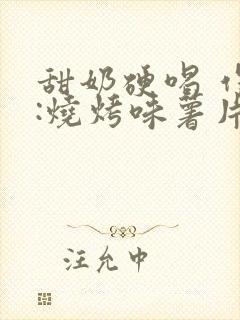 甜奶硬唱
:燒烤味薯片
汪允中